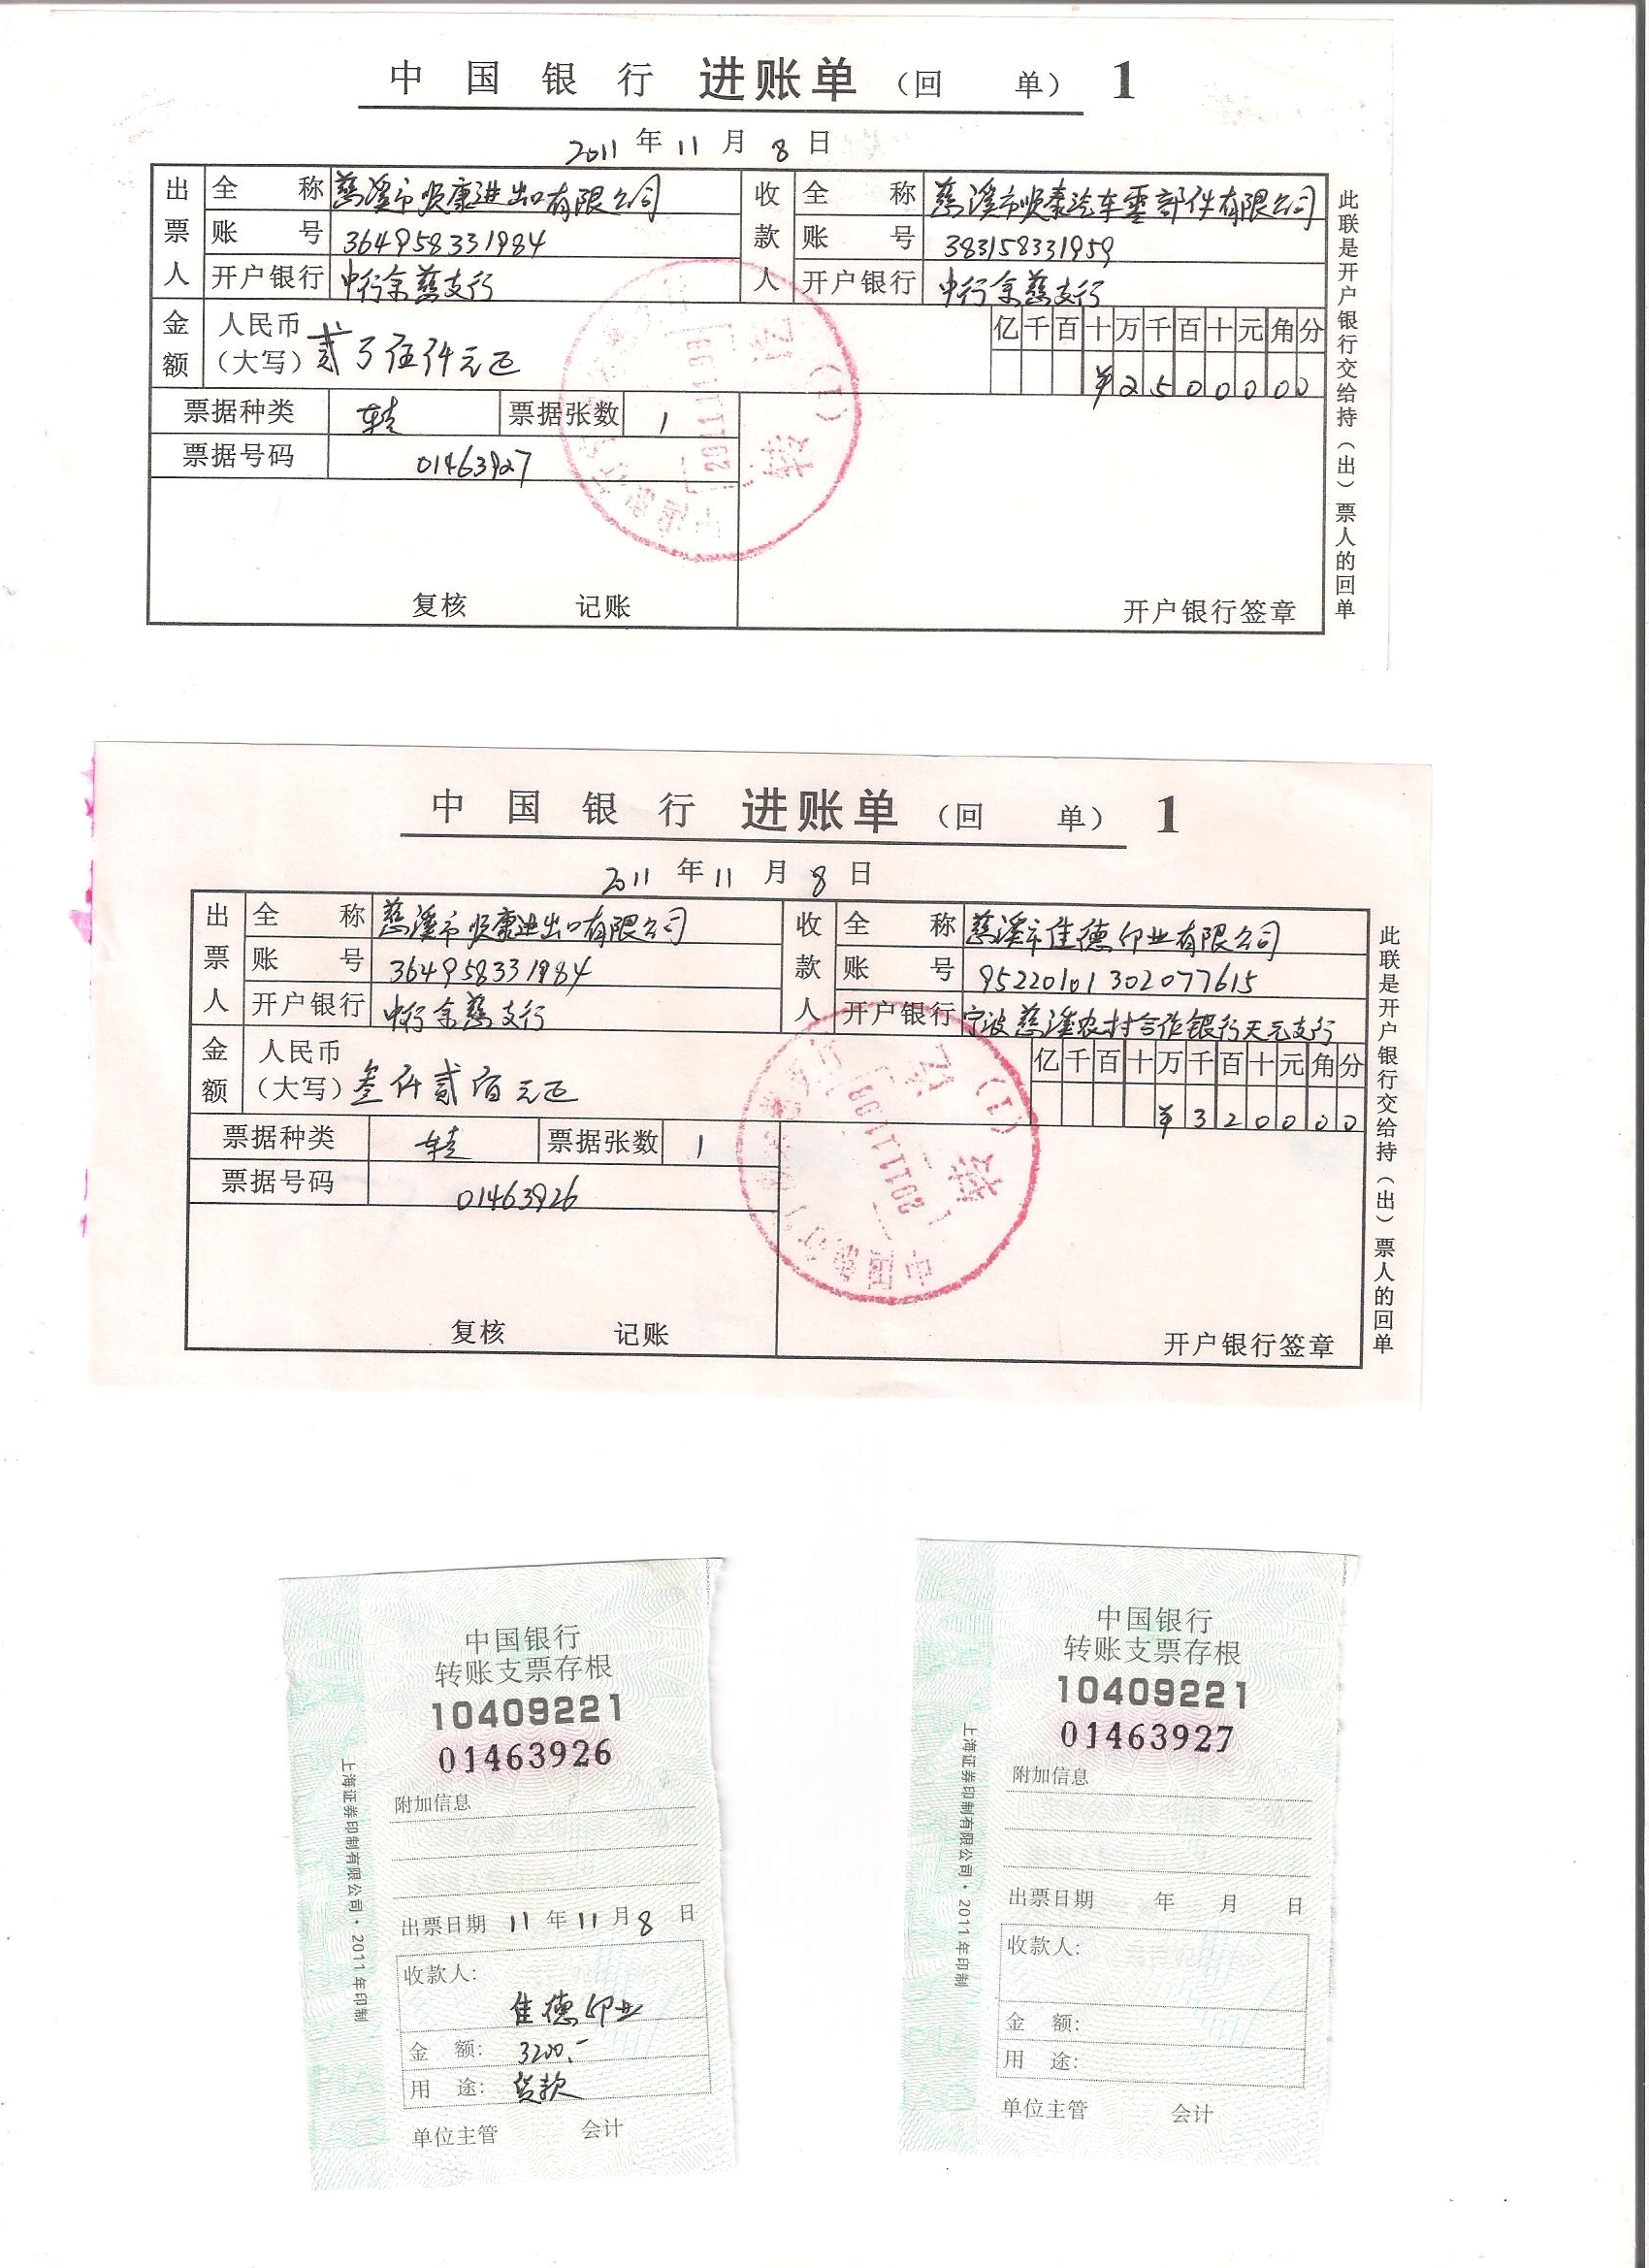 中国银行 进账单 （回 单） 1
2011 年 11 月 8 日
出票人 全称 慈溪市顺康进出口有限公司 收款人 全称 慈溪市顺泰汽车零部件有限公司
账号 364958331984 账号 383158331959
开户银行 中行余慈支行 开户银行 中行余慈支行
金额 人民币（大写） 贰万伍仟元正 亿千百十万千百十元角分
¥2500000
票据种类 转支 票据张数 1
票据号码 01463927
复核 记账 开户银行签章
此联是开户银行交给持（出）票人的回单
2011.11.08
转讫
(1)
中国银行 进账单 （回 单） 1
2011 年 11 月 8 日
出票人 全称 慈溪市顺康进出口有限公司 收款人 全称 慈溪市佳德印业有限公司
账号 364958331984 账号 95220101302077615
开户银行 中行余慈支行 开户银行 宁波慈溪农村合作银行天元支行
金额 人民币（大写） 叁仟贰佰元正 亿千百十万千百十元角分
¥320000
票据种类 转支 票据张数 1
票据号码 01463926
复核 记账 开户银行签章
此联是开户银行交给持（出）票人的回单
2011.11.08
转讫
(1)
中国银行
转账支票存根
10409221
01463926
附加信息
出票日期 11 年 11 月 8 日
收款人:
佳德印业
金 额: 3200.-
用 途: 货款
单位主管 会计
上海证券印制有限公司·2011年印制
中国银行
转账支票存根
10409221
01463927
附加信息
出票日期 年 月 日
收款人:
金 额:
用 途:
单位主管 会计
上海证券印制有限公司·2011年印制